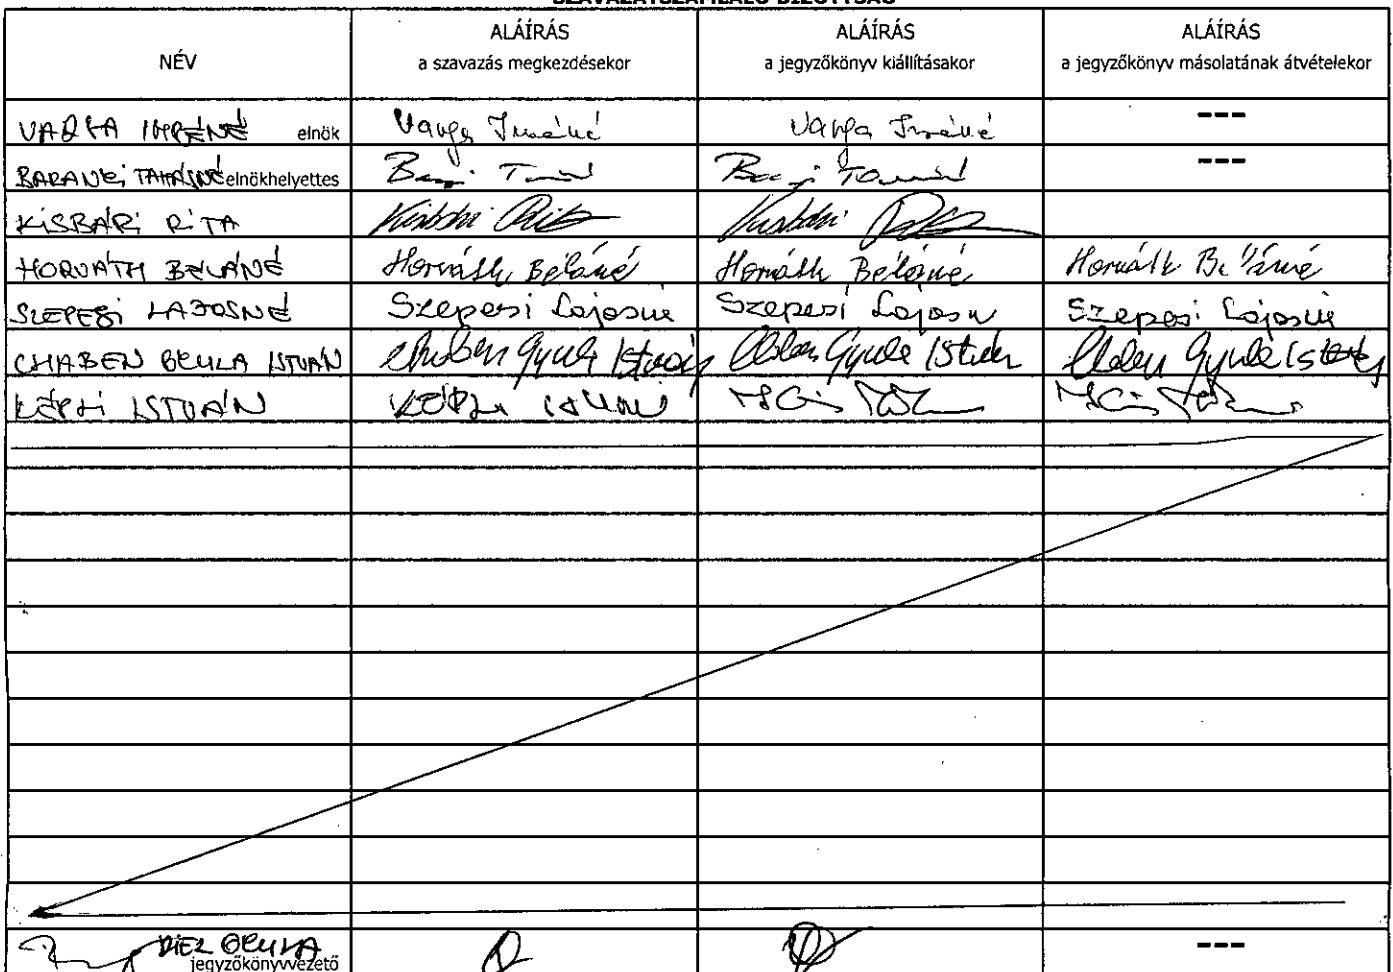 SZAVAZATSZÁMLÁLÓ BIZOTTSÁG
NÉV
ALÁÍRÁS
a szavazás megkezdésekor
ALÁÍRÁS
a jegyzőkönyv kiállításakor
ALÁÍRÁS
a jegyzőkönyv másolatának átvételekor
VARGA IMRÉNÉ elnök Varga Imréné Varga Imréné ---
BARANYI TAMÁSNÉ elnökhelyettes ---
KISBÁRI RITA Kisbári Rita Kisbári
HORVÁTH BÉLÁNÉ Horváth Béláné Horváth Béláné Horváth Béláné
SZEPESI LAJOSNÉ Szepesi Lajosné Szepesi Lajosn Szepesi Lajosné
CHABEN GYULA ISTVÁN Chaben Gyula István Gyula István Gyula István
KÉPLI ISTVÁN
GYULA
jegyzőkönyvvezető ---